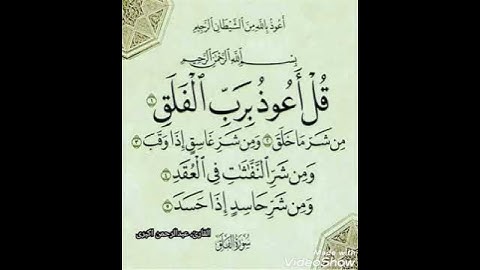 أعوذ بالله من الشيطان الرجيم
بِسْمِ اللَّهِ الرَّحْمَٰنِ الرَّحِيمِ
قُلْ أَعُوذُ بِرَبِّ الْفَلَقِ ۝١
مِن شَرِّ مَا خَلَقَ ۝٢ وَمِن شَرِّ غَاسِقٍ إِذَا وَقَبَ ۝٣
وَمِن شَرِّ النَّفَّٰثَٰتِ فِي الْعُقَدِ ۝٤
وَمِن شَرِّ حَاسِدٍ إِذَا حَسَدَ ۝٥
القارئ عبدالرحمن اکبری
سورة الفلق
Made with
VideoShow